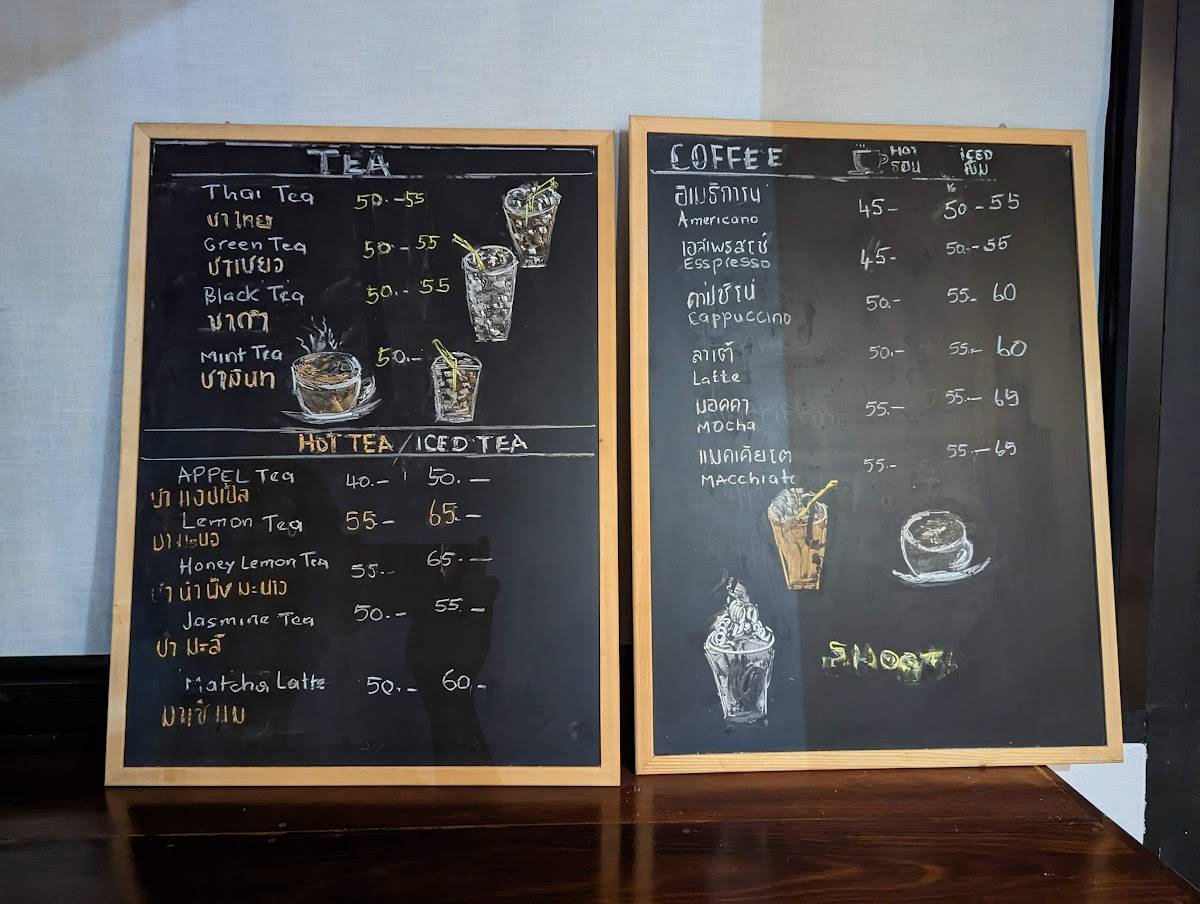 TEA
Thai Tea 50.-55
ชาไทย
Green Tea 50-55
ชาเขียว
Black Tea 50.-55
ชาดำ
Mint Tea 50.-
ชามินท
HOT TEA / ICED TEA
APPEL Tea 40.- 50.-
ชา แอปเปิล
Lemon Tea 55- 65.-
ชา มะนาว
Honey Lemon Tea 55.- 65.-
ชา น้ำ ผึ้ง มะนาว
Jasmine Tea 50.- 55.-
ชา มะลิ
Matcha Latte 50.- 60.-
COFFEE HOT ICED
รอน เย็น
อเมริกาน
Americano 45- 50-55
เอสเพรสโซ่
Esspresso 45- 50.-55
คาปูชิโน่
Cappuccino 50.- 55.- 60
ลาเต้
Latte 50.- 55.- 60
มอคคา
Mocha 55.- 55.- 65
แมคเคียโต
Macchiato 55.- 55.- 65